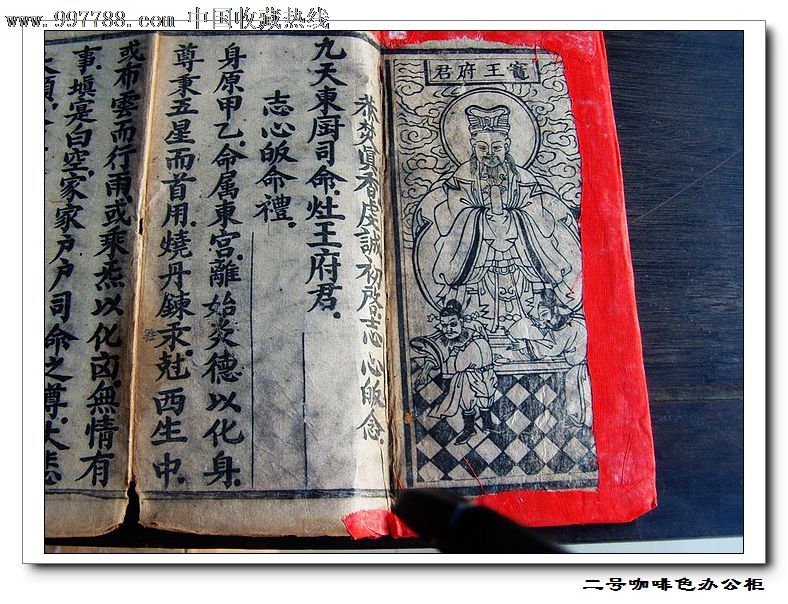 www.997788.com 中国收藏热线
君府王竈
恭焚真香虔誠初啓志心皈念.
九天東厨司命.灶王府君.
志心皈命禮.
身原甲乙.命属東宫.離始炎德以化身.
尊秉五星而首用.燒丹鍊汞.尅西生中.
或布雲而行雨.或乘炁以化囪.無情有
事.填寔白空.家家户户司命之尊.大悲
二号咖啡色办公柜